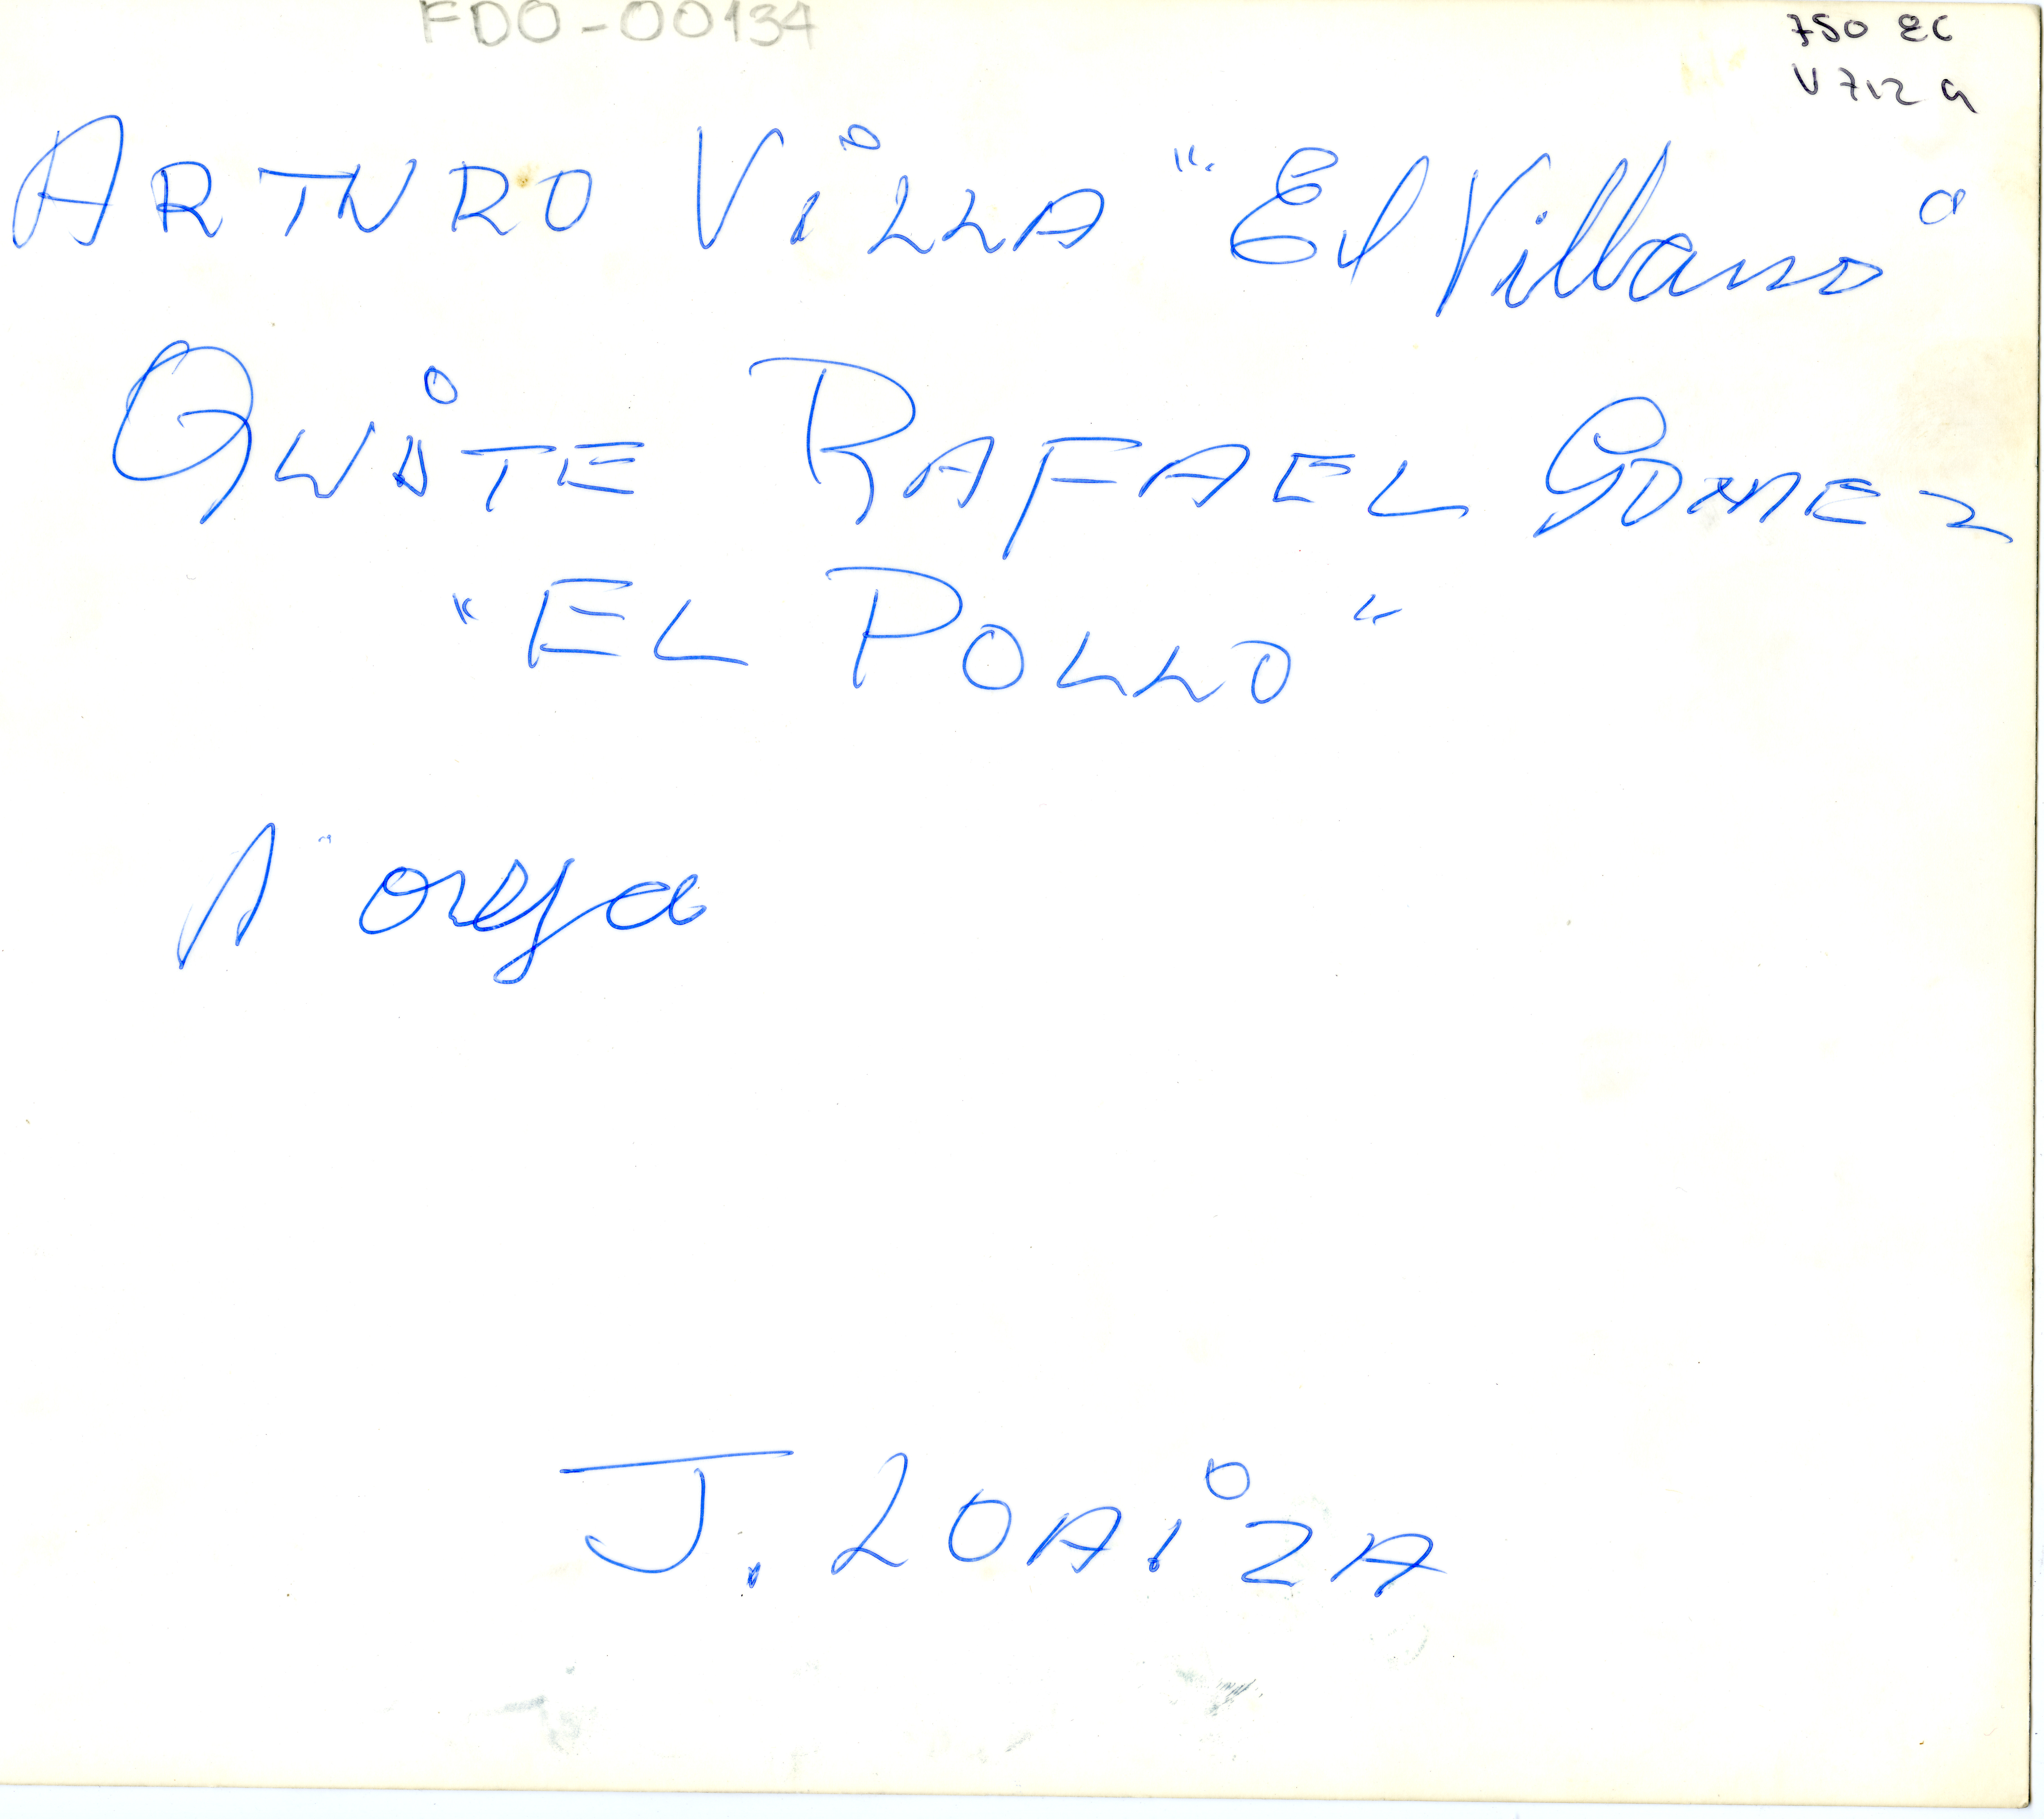 FDO-00134
750 EC
V 712 a
ARTURO ViLLA "El Villano"
QUiTE RAFAEL GOMEZ
"EL POLLO"
1 oreja
J. LOAiZA